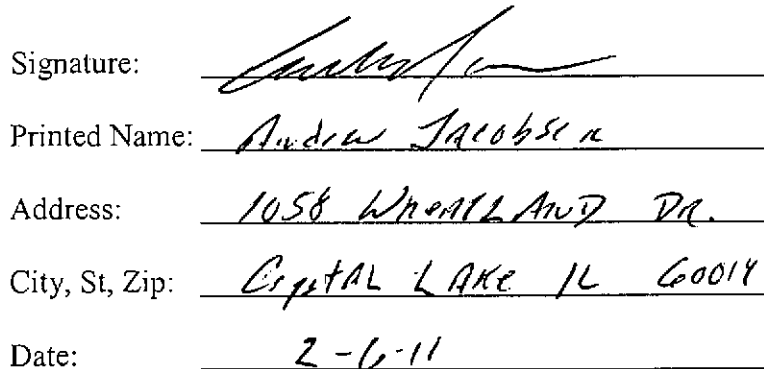 Signature:
Printed Name: Andrew Jacobsen
Address: 1058 Wheatland DR.
City, St, Zip: Crystal Lake IL 60014
Date: 2-6-11